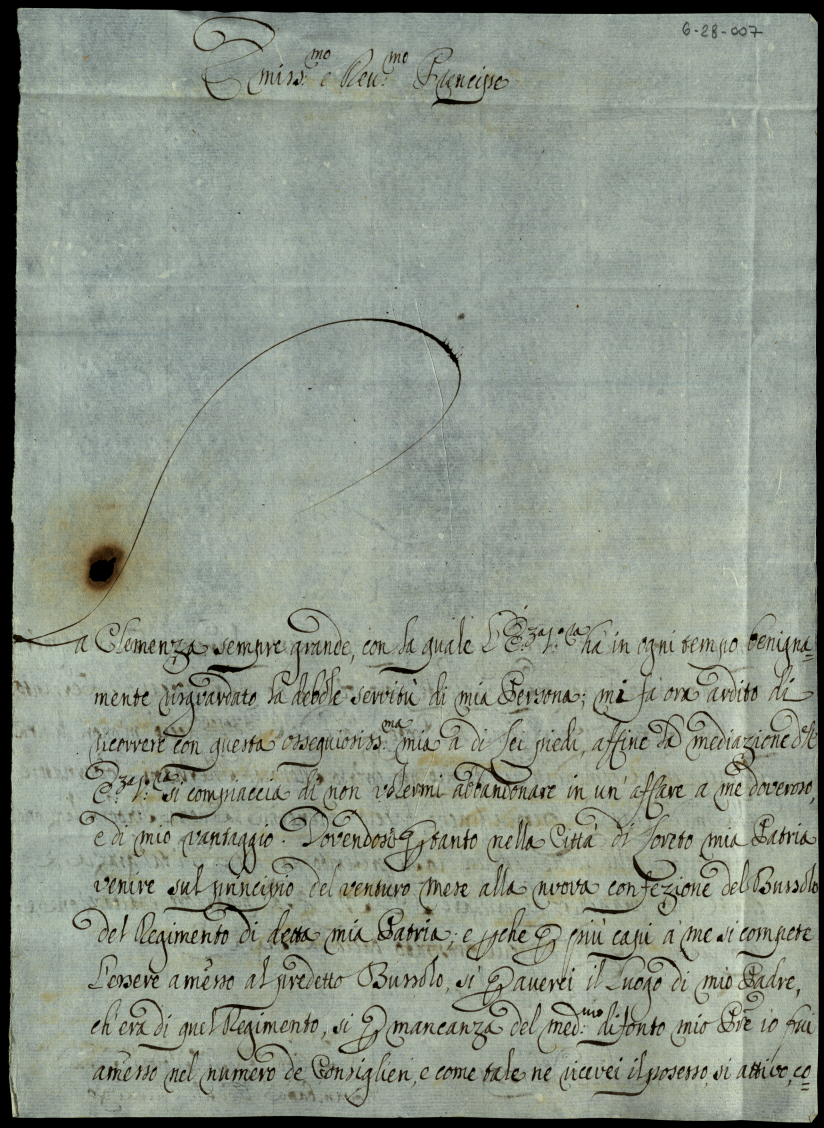 6-28-007
Emiss.mo e Reu.mo Principe
La Clemenza sempre grande, con la quale l'E.za V.ra hà in ogni tempo benigna=
mente risguardato la debole servitù di mia Persona; mi fà ora ardito di
ricorrere con questa ossequiosiss.ma mia a di lei piedi, affine la mediazione dell'
E.za V.ra si compiaccia di non volermi abbandonare in un' affare a me doveroso,
e di mio vantaggio. Dovendosi ptanto nella Città di Loreto mia Patria
venire sul principio del venturo mese alla nuova confezione del Bussolo
del Regimento di detta mia Patria, e pche p più capi à me si compete
l'essere amesso al predetto Bussolo, sì p averei il Luogo di mio Padre,
ch'era di quel Regimento, sì p mancanza del med.mo difonto mio Pre io fui
amesso nel numero de Consiglieri, e come tale ne ricevei il posesso, sì attivo, co=